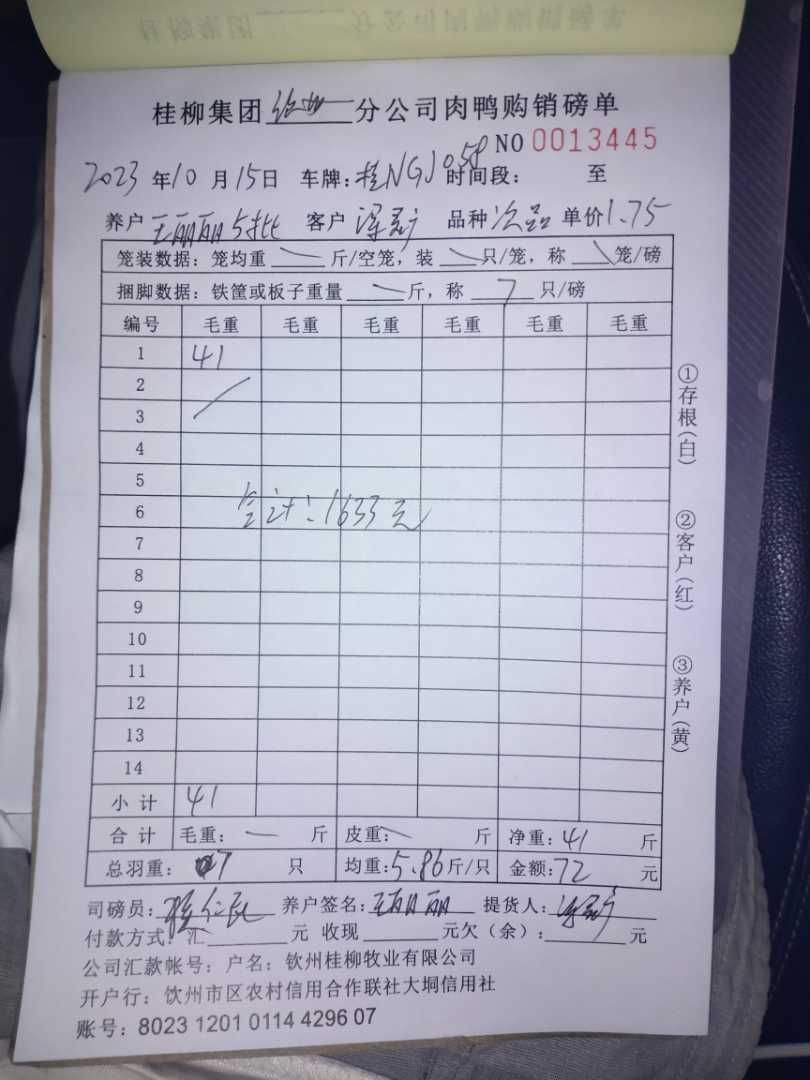 桂柳集团 分公司肉鸭购销磅单
NO 0013445
2023 年 10 月 15 日 车牌: 桂NGJ058 时间段: 至
养户 王丽丽5批 客户 梁 品种 次品 单价 1.75
笼装数据: 笼均重 斤/空笼, 装 只/笼, 称 笼/磅
捆脚数据: 铁筐或板子重量 斤, 称 7 只/磅
编号 毛重 毛重 毛重 毛重 毛重 毛重
1 41
2
3
4
5
6 合计: 1633元
7
8
9
10
11
12
13
14
小计 41
合计 毛重: 斤 皮重: 斤 净重: 41 斤
总羽重: 7 只 均重: 5.86 斤/只 金额: 72 元
司磅员: 养户签名: 王丽丽 提货人:
付款方式: 汇 元 收现 元欠(余): 元
公司汇款帐号: 户名: 钦州桂柳牧业有限公司
开户行: 饮州市区农村信用合作联社大垌信用社
账号: 8023 1201 0114 4296 07
①存根(白)
②客户(红)
③养户(黄)